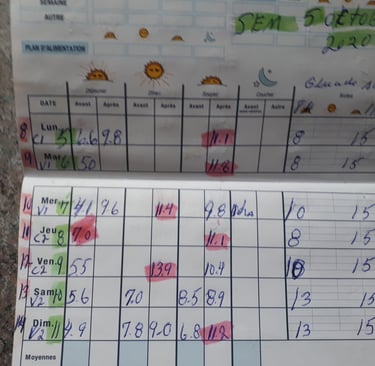 SEMAINE
AUTRE
SEM 5 OCTOB
2020
PLAN D'ALIMENTATION
Déjeuner Dîner Souper Coucher
DATE Avant Après Avant Après Avant Après Avant Autre Notes
8 Lun. 5 6.6 9.8 11.1 8 15
9 Mar. 6 50 11.8 8 15
10 Mer. V1 7 41 9.6 11.4 9.8 10 15
11 Jeu. C2 8 7.0 11.1 8 15
12 Ven. C2 9 5.5 13.9 10.4 10 15
13 Sam. V2 10 5.6 7.0 8.5 8.9 13 15
14 Dim. V2 11 4.9 7.8 9.0 6.8 11.2 13 15
Moyennes